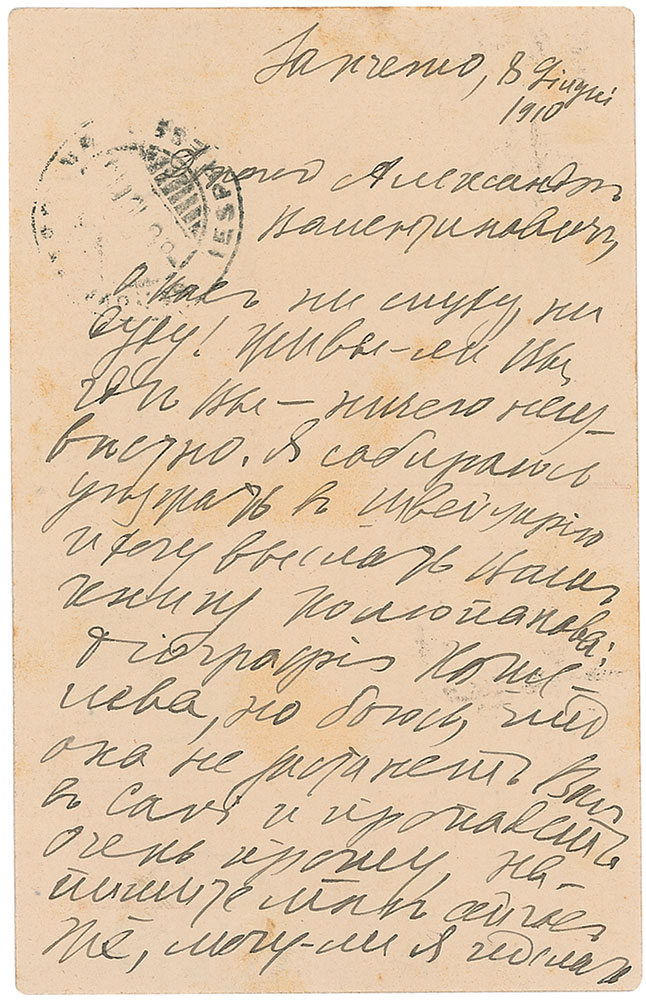 8 Giugni
1910
Александръ
Валентиновичъ,
о васъ ни слуху, ни
духу! Живы-ли Вы,
гдѣ Вы — ничего неиз-
вѣстно. Я собираюсь
уѣзжать в Швейцарію
и хочу выслать Вамъ
книгу Колюпанова:
Біографія Коше-
лева, но боюсь, что
она не застанетъ Васъ
в и пропадетъ
очень прошу, на-
пишите мнѣ сейчасъ
же, могу-ли я
ESPRESS